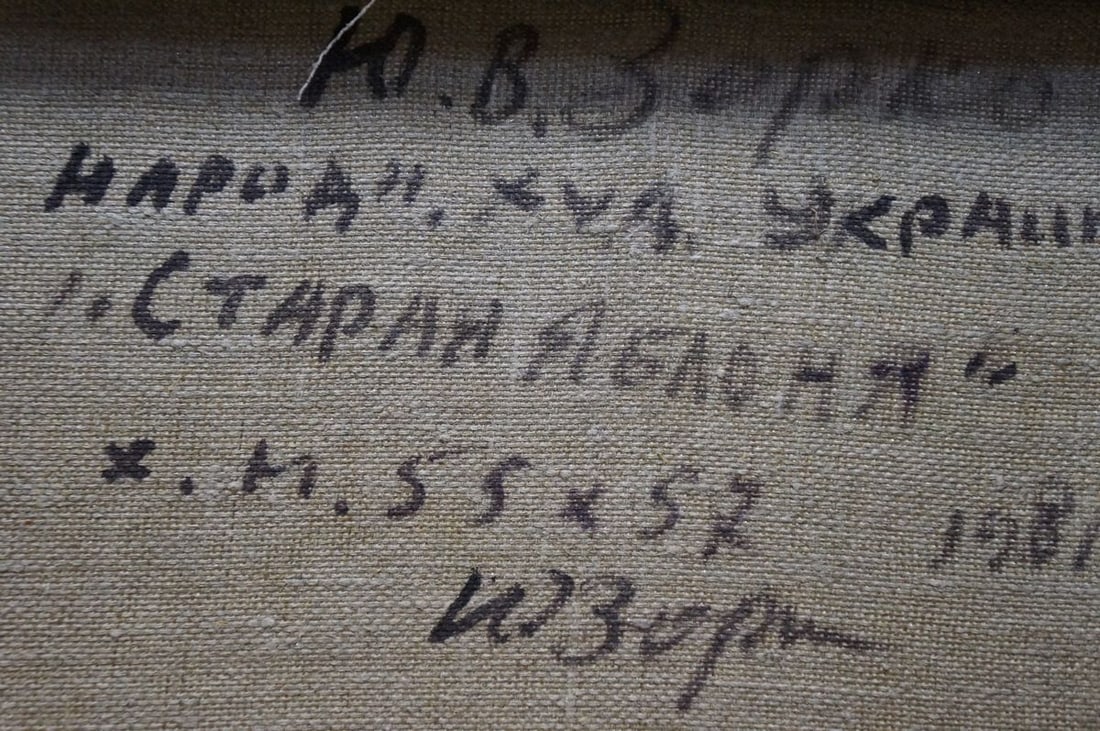 Ю.В. Зорко
народн. худ. Украин
"СТАРАЯ ЯБЛОНЯ"
х.м. 55х57 1981
ЮЗорк